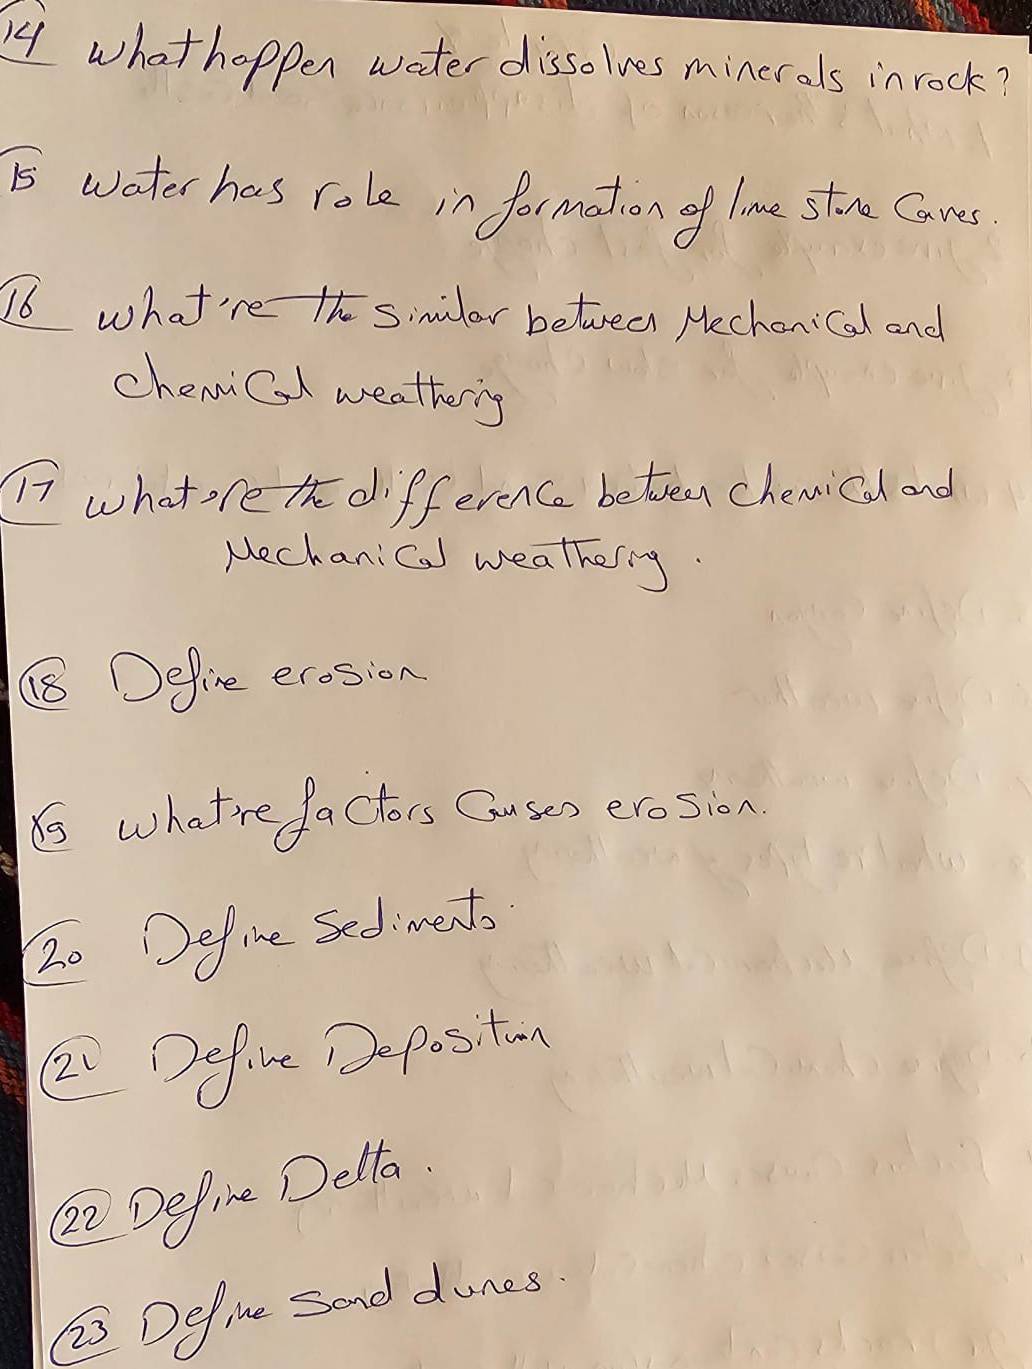 14 what happen water dissolves minerals in rock?
15 water has role in formation of lime stone Caves.
16 what're the similar between Mechanical and
chemical weathering
17 what're the difference between chemical and
Mechanical weathering.
18 Define erosion
19 what're factors Causes erosion.
20 Define Sediments.
21 Define Deposition
22 Define Delta.
23 Define Sand dunes.